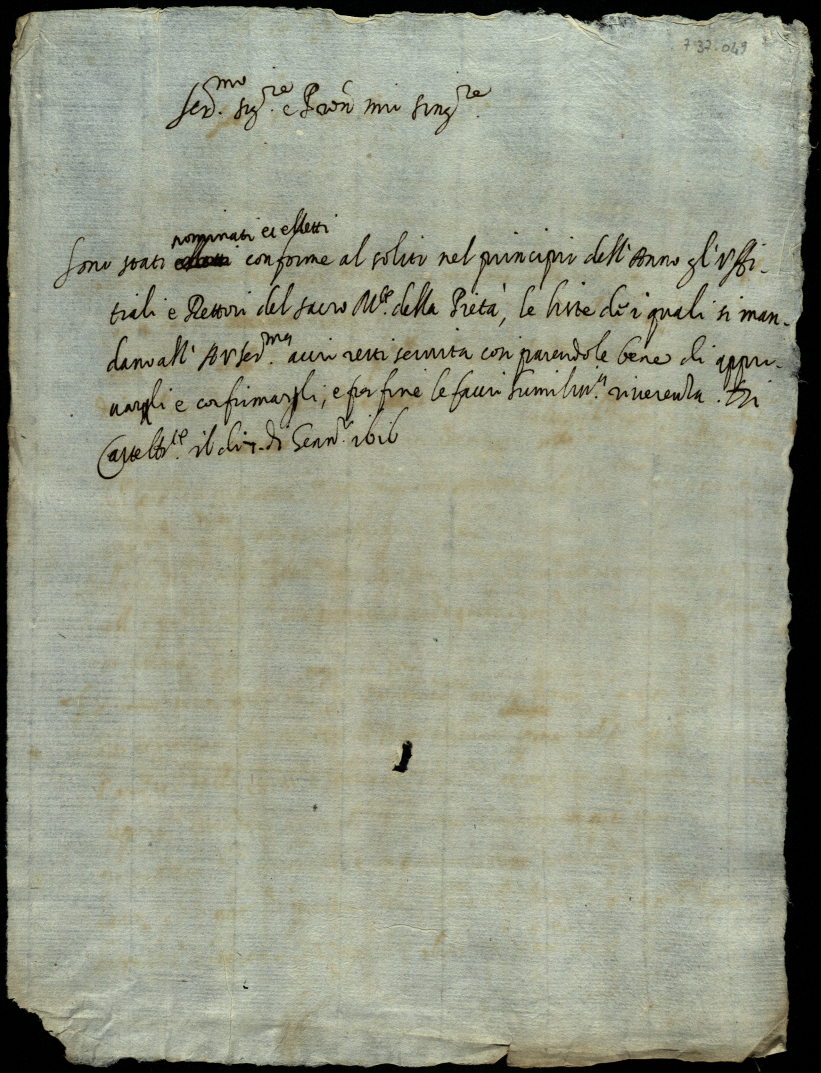 7-32-049
Ser.mo Sig.re e Pron mio sing.re
nominati et eletti
Sono stati eletti conforme al solito nel principio dell' Anno gl' Uffi-
tiali e Rettori del sacro M.te della Pietà, le liste de i quali si man-
dano all' A V Ser.ma acciò resti servita con parendole bene di appro-
vargli e confirmargli; e per fine le facciò humiliss.a riverenza. Di
il di 7 di Genn.o 1616